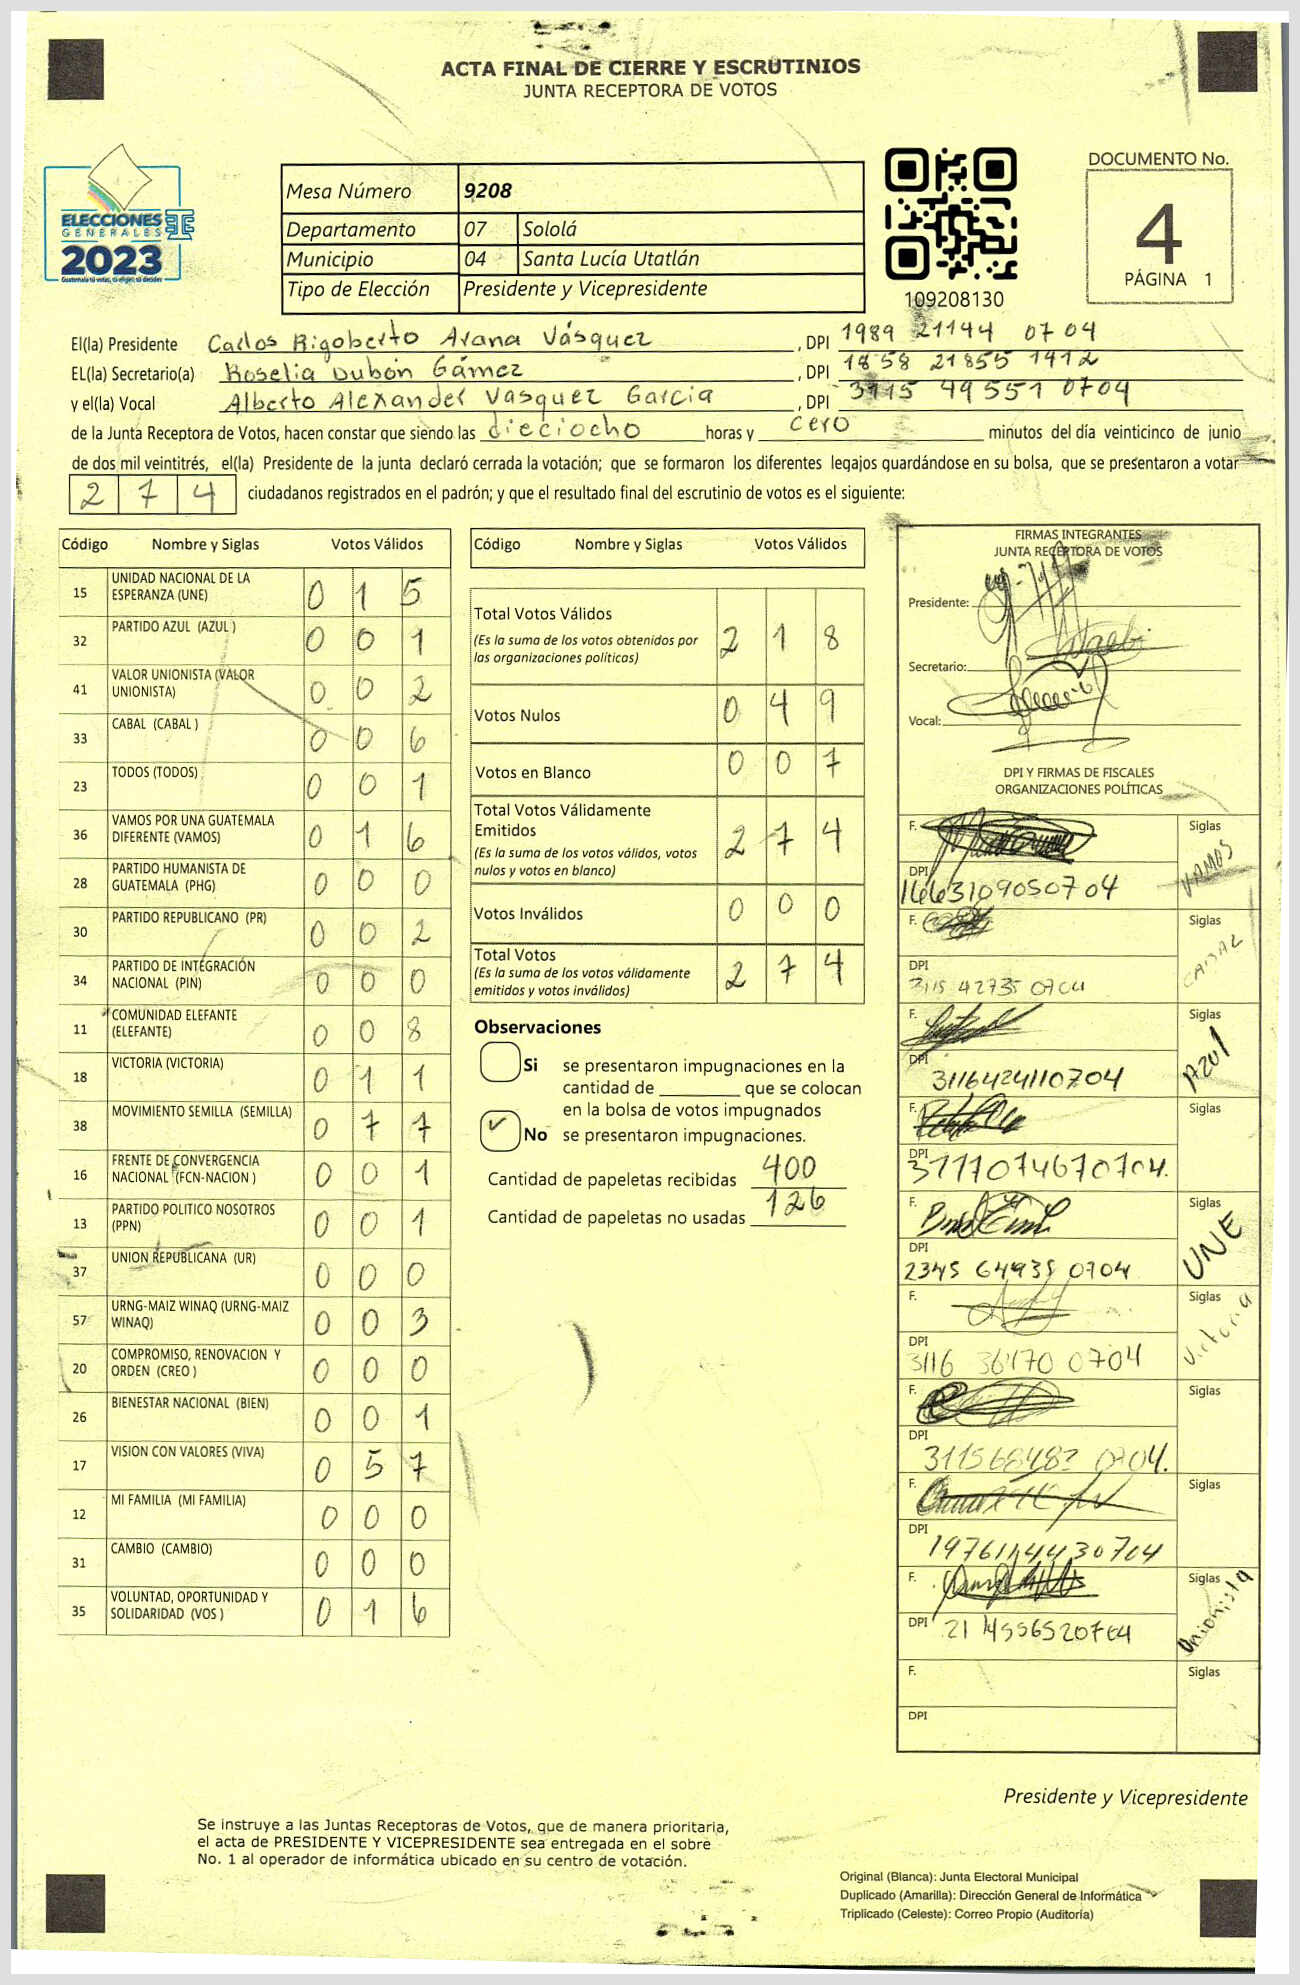 ACTA FINAL DE CIERRE Y ESCRUTINIOS
JUNTA RECEPTORA DE VOTOS
ELECCIONES
GENERALES
2023
Guatemala tú votas, tú eliges, tú decides
Mesa Número 9208
Departamento 07 Sololá
Municipio 04 Santa Lucía Utatlán
Tipo de Elección Presidente y Vicepresidente
109208130
DOCUMENTO No.
4
PÁGINA 1
El(la) Presidente Carlos Rigoberto Arana Vásquez, DPI 1989 21144 0704
EL(la) Secretario(a) Roselia Dubón Gámez, DPI 1858 21855 1412
y el(la) Vocal Alberto Alexander Vasquez Garcia, DPI 3115 49551 0704
de la Junta Receptora de Votos, hacen constar que siendo las dieciocho horas y cero minutos del día veinticinco de junio
de dos mil veintitrés, el(la) Presidente de la junta declaró cerrada la votación; que se formaron los diferentes legajos guardándose en su bolsa, que se presentaron a votar
274 ciudadanos registrados en el padrón; y que el resultado final del escrutinio de votos es el siguiente:
Código Nombre y Siglas Votos Válidos
15 UNIDAD NACIONAL DE LA ESPERANZA (UNE) 0 1 5
32 PARTIDO AZUL (AZUL ) 0 0 1
41 VALOR UNIONISTA (VALOR UNIONISTA) 0 0 2
33 CABAL (CABAL ) 0 0 6
23 TODOS (TODOS) 0 0 1
36 VAMOS POR UNA GUATEMALA DIFERENTE (VAMOS) 0 1 6
28 PARTIDO HUMANISTA DE GUATEMALA (PHG) 0 0 0
30 PARTIDO REPUBLICANO (PR) 0 0 2
34 PARTIDO DE INTEGRACIÓN NACIONAL (PIN) 0 0 0
11 COMUNIDAD ELEFANTE (ELEFANTE) 0 0 8
18 VICTORIA (VICTORIA) 0 1 1
38 MOVIMIENTO SEMILLA (SEMILLA) 0 7 7
16 FRENTE DE CONVERGENCIA NACIONAL (FCN-NACION ) 0 0 1
13 PARTIDO POLITICO NOSOTROS (PPN) 0 0 1
37 UNION REPUBLICANA (UR) 0 0 0
57 URNG-MAIZ WINAQ (URNG-MAIZ WINAQ) 0 0 3
20 COMPROMISO, RENOVACION Y ORDEN (CREO ) 0 0 0
26 BIENESTAR NACIONAL (BIEN) 0 0 1
17 VISION CON VALORES (VIVA) 0 5 7
12 MI FAMILIA (MI FAMILIA) 0 0 0
31 CAMBIO (CAMBIO) 0 0 0
35 VOLUNTAD, OPORTUNIDAD Y SOLIDARIDAD (VOS ) 0 1 6
Código Nombre y Siglas Votos Válidos
Total Votos Válidos 2 1 8
(Es la suma de los votos obtenidos por
las organizaciones políticas)
Votos Nulos 0 4 9
Votos en Blanco 0 0 7
Total Votos Válidamente
Emitidos 2 7 4
(Es la suma de los votos válidos, votos
nulos y votos en blanco)
Votos Inválidos 0 0 0
Total Votos 2 7 4
(Es la suma de los votos válidamente
emitidos y votos inválidos)
Observaciones
Si se presentaron impugnaciones en la
cantidad de ________ que se colocan
en la bolsa de votos impugnados
No se presentaron impugnaciones.
Cantidad de papeletas recibidas 400
Cantidad de papeletas no usadas 126
FIRMAS INTEGRANTES
JUNTA RECEPTORA DE VOTOS
Presidente:
Secretario:
Vocal:
DPI Y FIRMAS DE FISCALES
ORGANIZACIONES POLÍTICAS
F. Siglas VAMOS
DPI 1663109050704
F. Siglas CABAL
DPI 3115 42735 0704
F. Siglas Azul
DPI 3116424110704
F. Siglas
DPI 3777074670704.
F. Siglas UNE
DPI 2345 64935 0704
F. Siglas Victoria
DPI 3116 36470 0704
F. Siglas
DPI 311568482 0704.
F. Siglas
DPI 1976114430704
F. Siglas Unionista
DPI 21 14556520704
F. Siglas
DPI
Presidente y Vicepresidente
Se instruye a las Juntas Receptoras de Votos, que de manera prioritaria,
el acta de PRESIDENTE Y VICEPRESIDENTE sea entregada en el sobre
No. 1 al operador de informática ubicado en su centro de votación.
Original (Blanca): Junta Electoral Municipal
Duplicado (Amarilla): Dirección General de Informática
Triplicado (Celeste): Correo Propio (Auditoría)